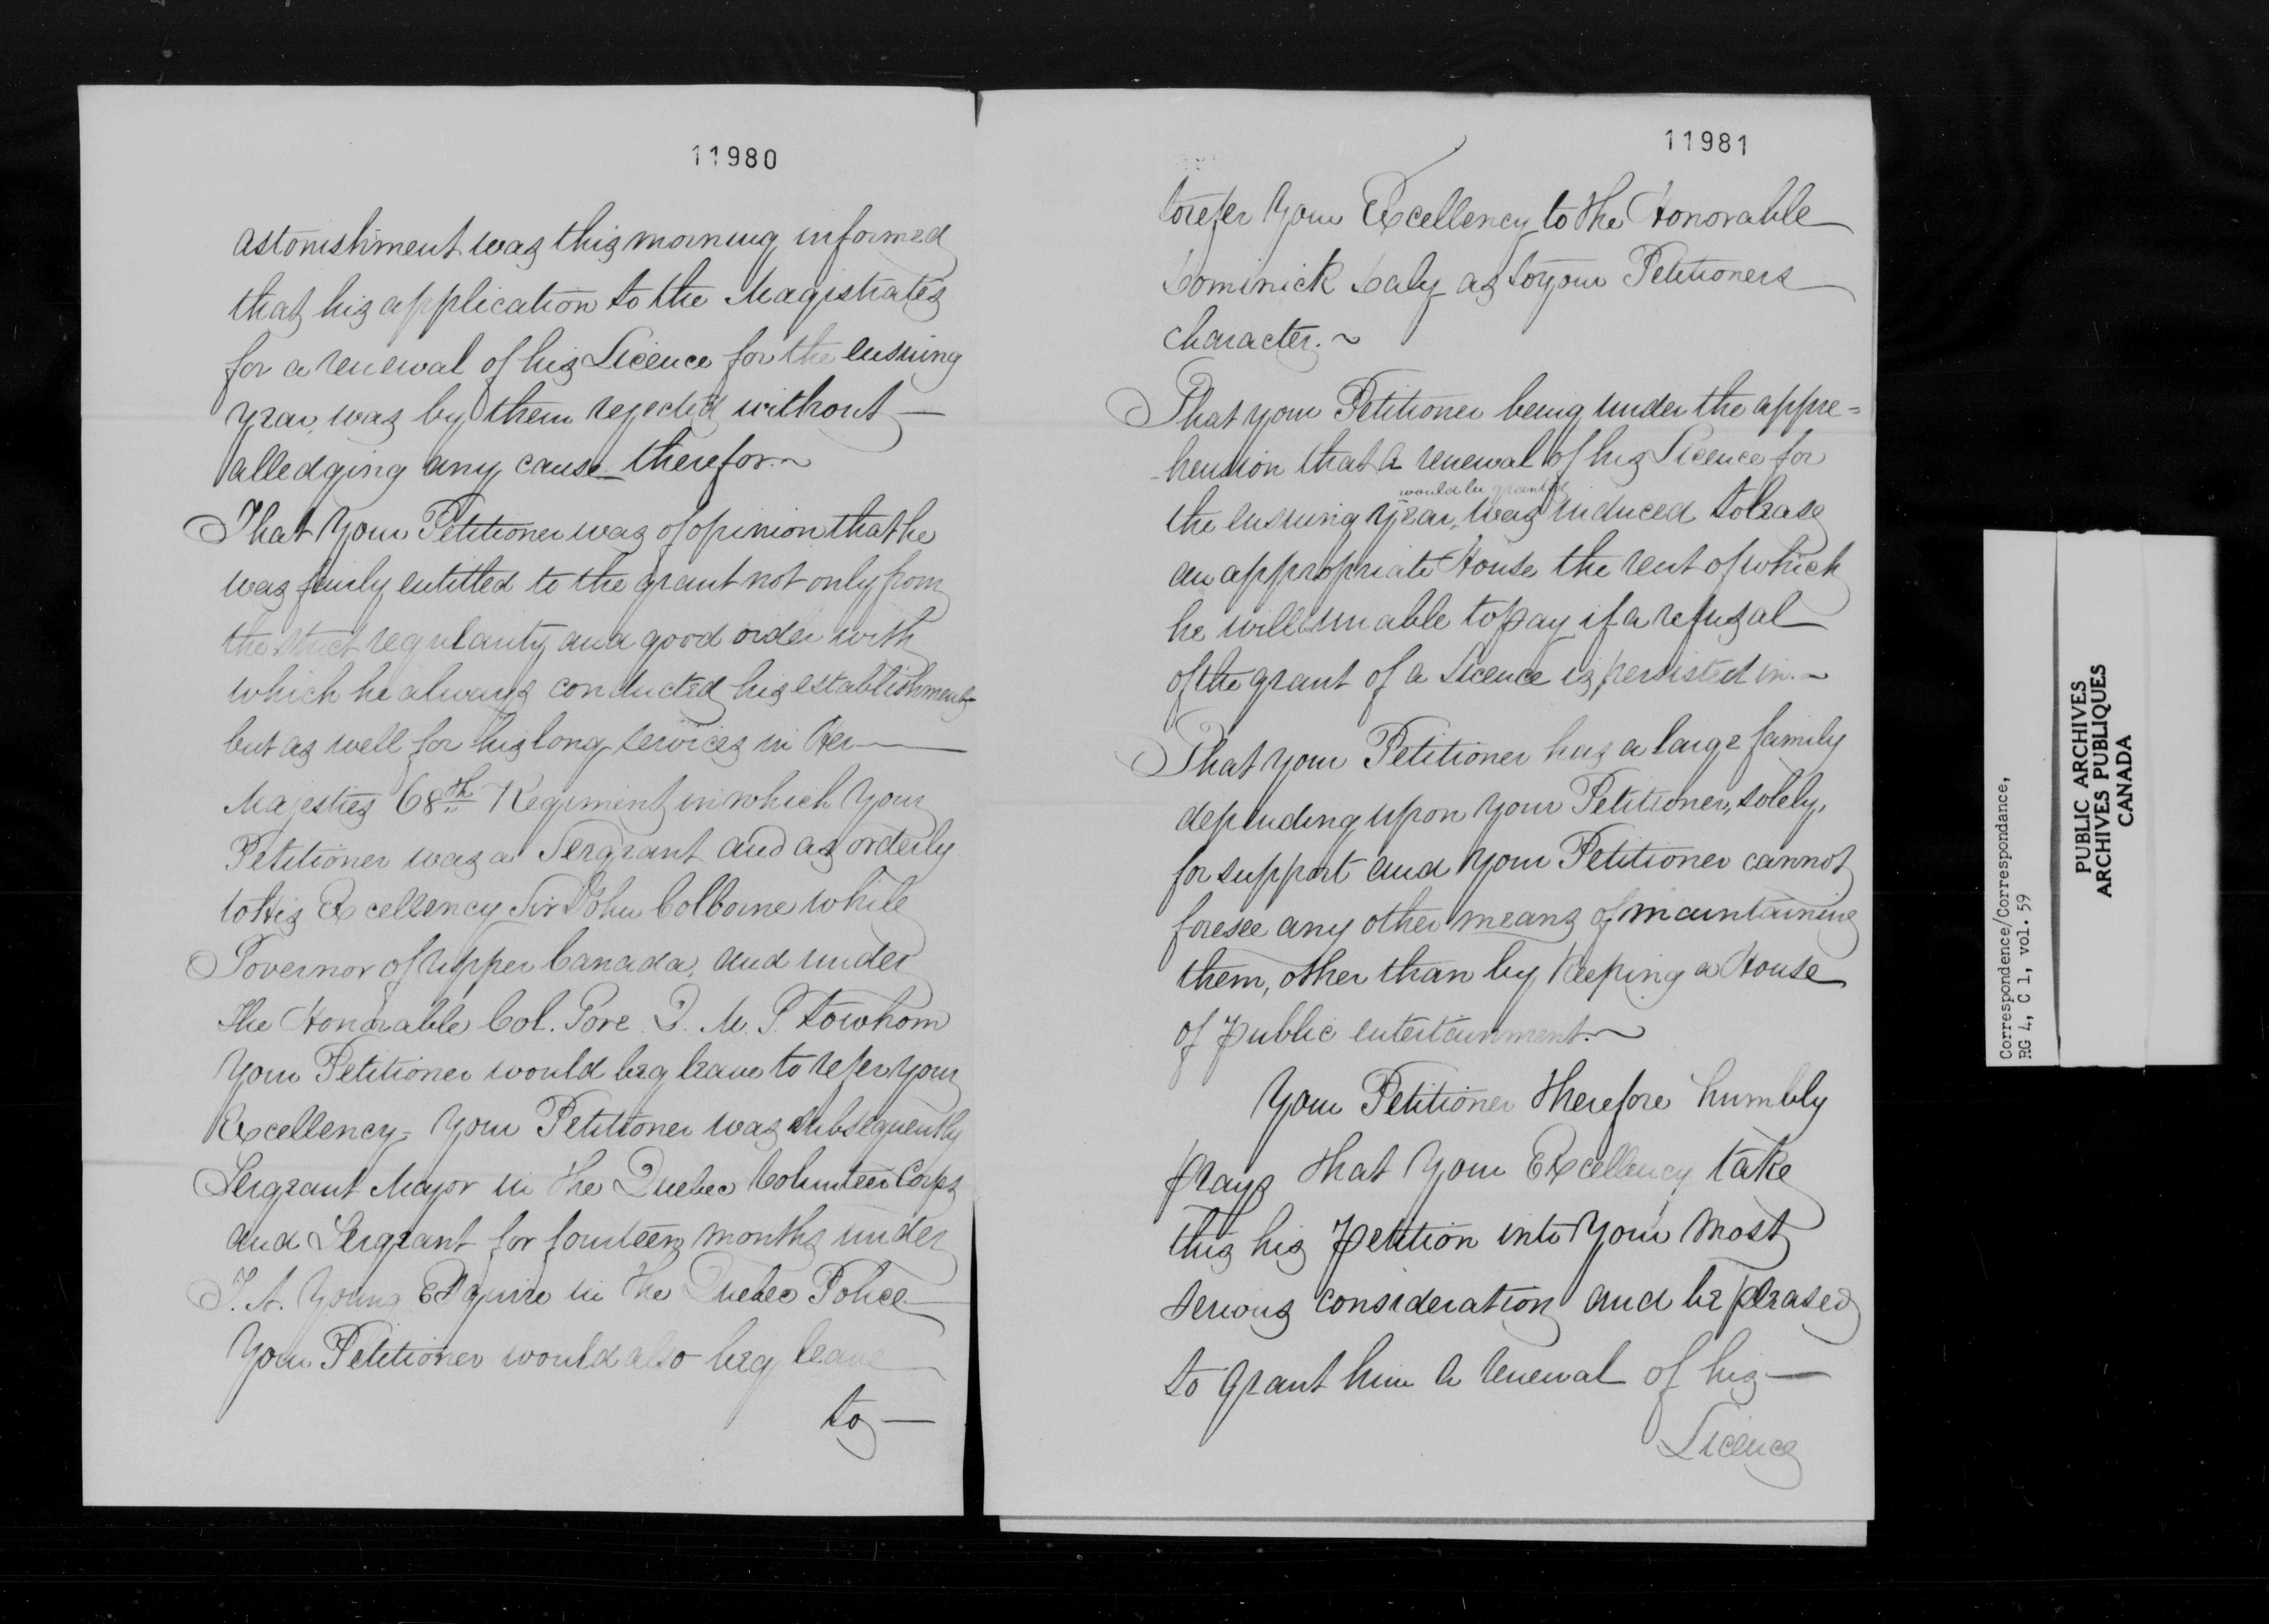 11980
astonishment was this morning informed
that his application to the Magistrates
for a renewal of his Licence for the ensuing
year, was by them rejected without —
alledging any cause therefor.~
That Your Petitioner was of opinion that he
was fairly entitled to the grant not only from
the strict regularity and good order with
which he always conducted his establishment
but as well for his long services in Her —
Majesties 68th Regiment in which Your
Petitioner was a Sergeant and as orderly
to His Excellency Sir John Colborne while
Governor of Upper Canada, and under
The Honorable Col. Gore D. M. G. to whom
Your Petitioner would beg leave to refer your
Excellency - Your Petitioner was subsequently
Sergeant Major in the Quebec Volunteer Corps
and Sergeant for fourteen months under
T. A. Young Esquire in the Quebec Police —
Your Petitioner would also beg leave
to —
11981
to refer Your Excellency to the Honorable
Dominick Daly as to your Petitioners
character. ~
That your Petitioner being under the appre=
-hension that a renewal of his Licence for
would be granted
the ensuing year, was induced to lease
an appropriate House the rent of which
he will unable to pay if a refusal
of the grant of a Licence is persisted in. ~
That your Petitioner has a large family
depending upon your Petitioner, solely,
for support and Your Petitioner cannot
foresee any other means of maintaining
them, other than by Keeping a House
of Public entertainment. ~
Your Petitioner Therefore humbly
prays that Your Excellency take
this his Petition into Your most
serious consideration and be pleased
to grant him a renewal of his —
Licence
Correspondence/Correspondance,
RG 4, C 1, vol. 59
PUBLIC ARCHIVES
ARCHIVES PUBLIQUES
CANADA